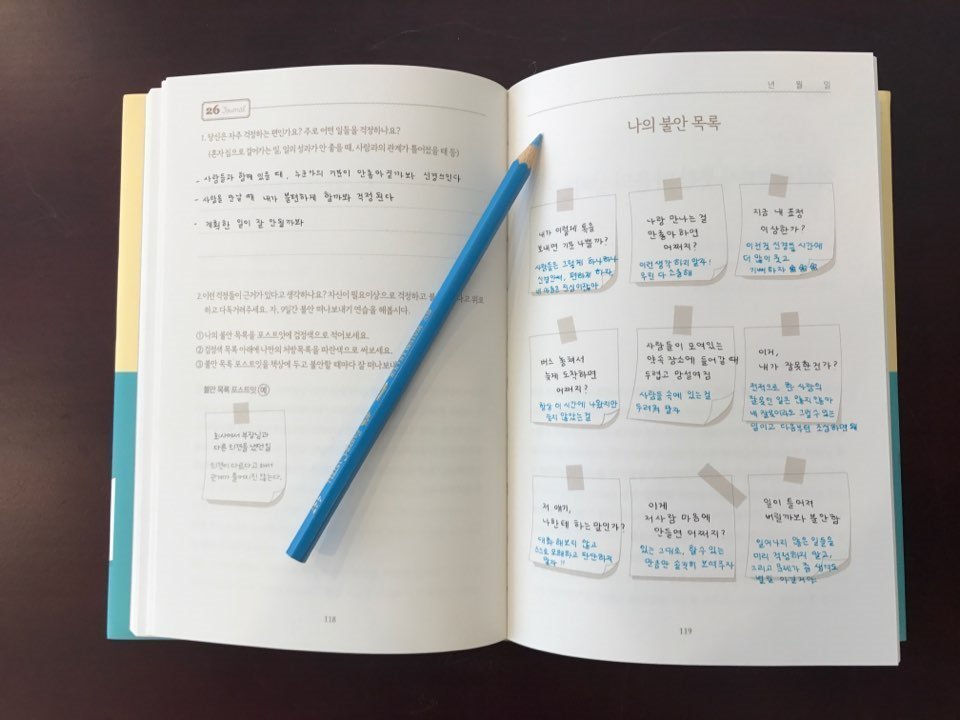 26 Journal
1. 당신은 자주 걱정하는 편인가요? 주로 어떤 일들을 걱정하나요?
(혼자 집으로 걸어가는 일, 일의 성과가 안 좋을 때, 사람과의 관계가 틀어졌을 때 등)
- 사람들과 함께 있을 때, 누군가의 기분이 안좋아질까봐 신경쓰인다
- 사람을 만날 때 내가 불편하게 할까봐 걱정된다
- 계획한 일이 잘 안될까봐
2. 이런 걱정들이 근거가 있다고 생각하나요? 자신이 필요이상으로 걱정하고
다고 위로
하고 다독거려주세요. 자, 9일간 불안 떠나보내기 연습을 해봅시다.
① 나의 불안 목록을 포스트잇에 검정색으로 적어보세요.
② 검정색 목록 아래에 나만의 처방목록을 파란색으로 써보세요.
③ 불안 목록 포스트잇을 책상에 두고 불안할 때마다 잘 떠나보내
불안 목록 포스트잇 예
회사에서 부장님과
다른 의견을 냈던일
의견이 다르다고 해서
관계가 틀어지진 않는다.
118
년 월 일
나의 불안 목록
내가 이렇게 톡을
보내면 기분 나쁠까?
사람들은 그렇게 하나하나
신경안써, 편하게 하자.
내 마음은 진심이잖아
나랑 만나는걸
안좋아 하면
어쩌지?
이런생각 하지 말자!
우린 다 소중해
지금 내 표정
이상한가?
이런걸 신경쓸 시간에
더 많이 웃고
기뻐하자
버스 놓쳐서
늦게 도착하면
어쩌지?
항상 이시간에 나왔지만
늦지 않았는걸
사람들이 모여있는
약속 장소에 들어갈 때
두렵고 망설여짐
사람들 속에 있는걸
두려워 말자
이거,
내가 잘못한건가?
전적으로 한 사람의
잘못인 일은 있지 않아
내 잘못이라도 그럴수있는
일이고 다음부턴 조심하면 돼
저 얘기,
나한테 하는 말인가?
대화 해보지 않고
스스로 오해하고 판단하지
말자!!
이게
저사람 마음에
안들면 어쩌지?
있는 그대로, 할수있는
만큼만 솔직히 보여주자
일이 틀어져
버릴까봐 불안함
일어나지 않은 일들을
미리 걱정하지 말고,
그리고 문제가 좀 생겨도
119